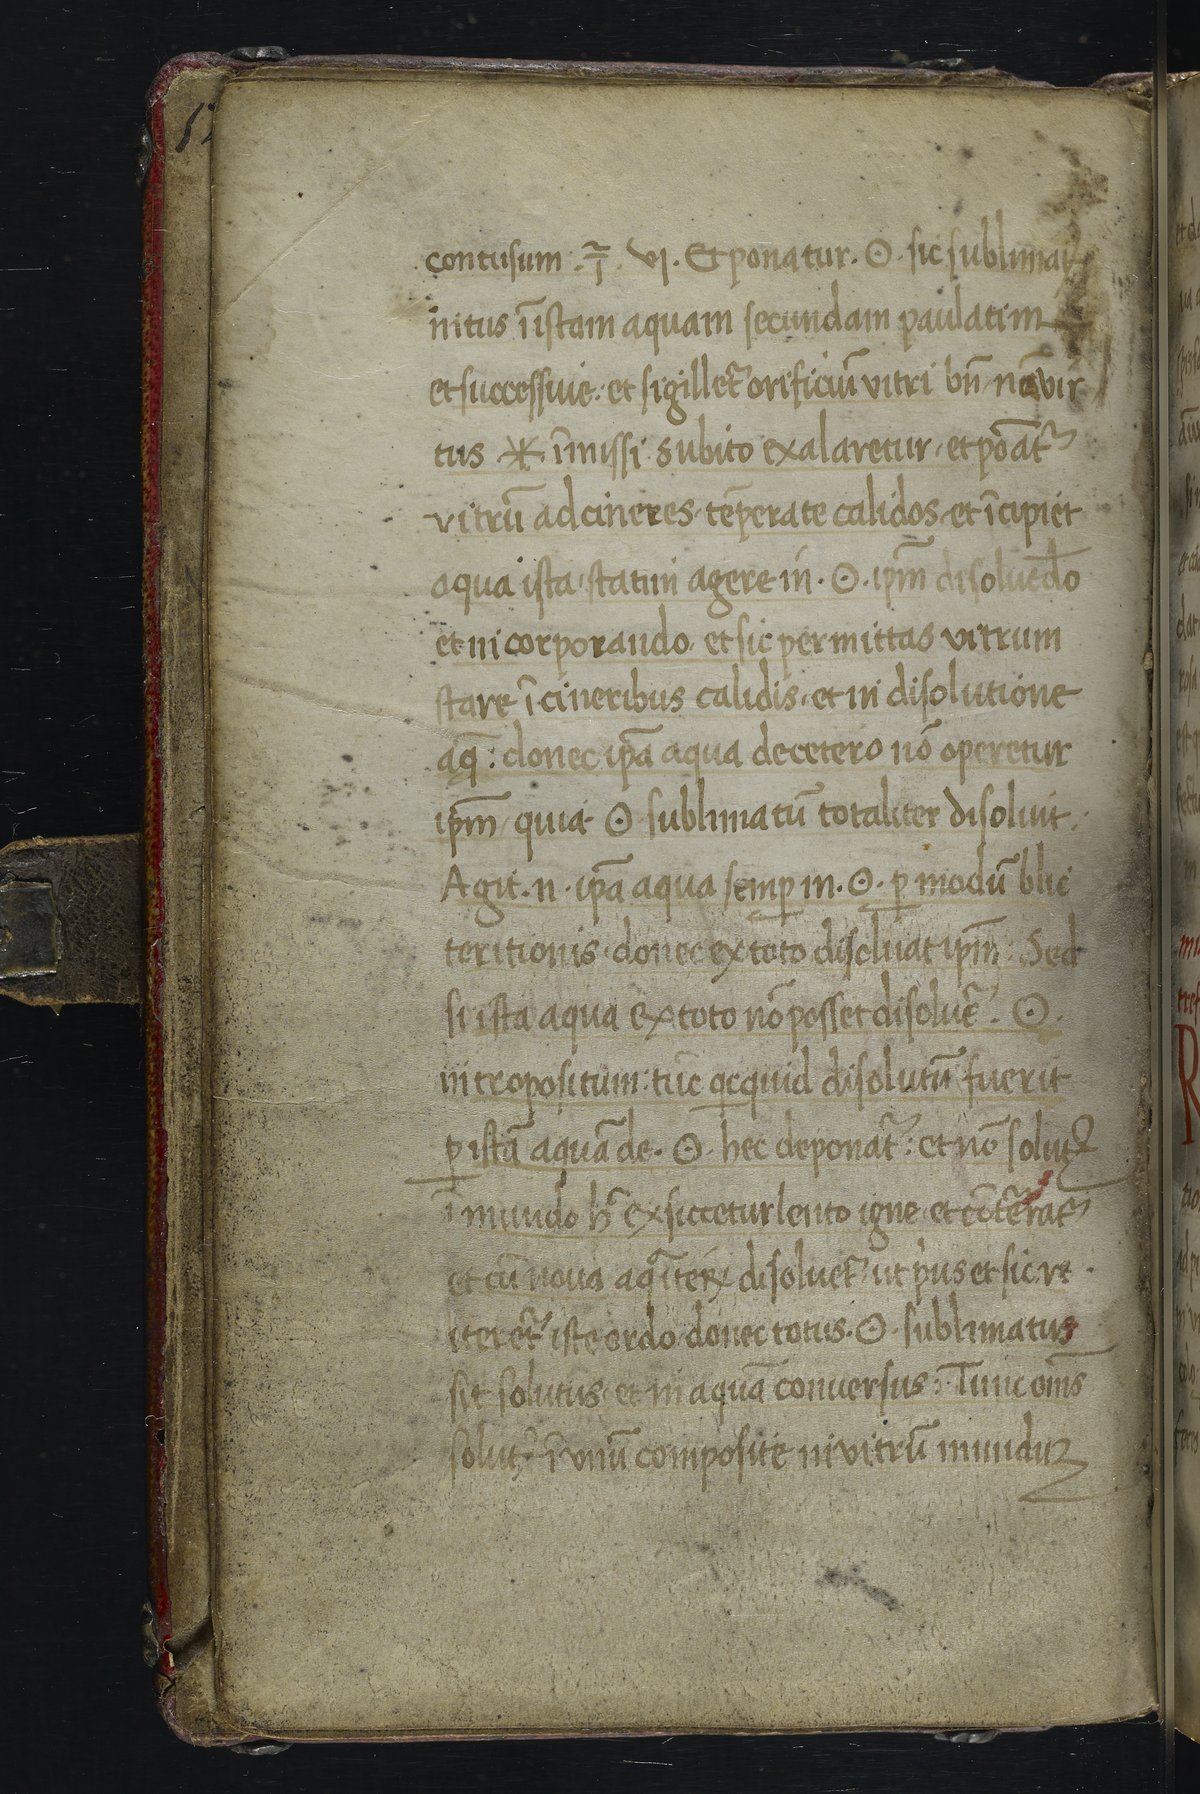 contusum . ʒ̃. vj. Et ponatur. ☉. sic sublimat
nitus ĩ istam aquam secundam paulatim
et successiue. et sigillet᷑ orificiũ vitri bñ. nẽ vir
tus ✳ ĩmissi subito exalaretur. et põat᷑
vitrũ ad cineres tẽperate calidos. et ĩcipiet
aqua ista statim agere in. ☉. ip̃m disoluẽdo
et in corporando. et sic permittas vitrum
stare ĩ cineribus calidis. et in disolutione
aq̃: donec ip̃a aqua decetero nõ operetur
ip̃m quia ☉ sublimatũ totaliter disoluit.
Agit. n. ip̃a aqua semꝑ in. ☉. ꝑ modũ blic
teritionis donec ex toto disoluat ip̃m: Sed
si ista aqua ex toto nõ posset disoluẽ᷑. ☉.
in tropositum: tũc qcquid disolutũ fuerit
ꝑ istã aquã de. ☉. hec deponat᷑: et nõ solutꝫ
ĩ mundo h̃ exsiccetur lento igne et cõterat᷑
et cũ noua aq̃ iteꝝ disoluet᷑ ut pͥus et sic re
iteret᷑ iste ordo donec totus. ☉. sublimatus
sit solutus et in aquã conuersus: Tunc oms̃
solut᷑ ĩ vnũ composite in vitrũ munduꝫ